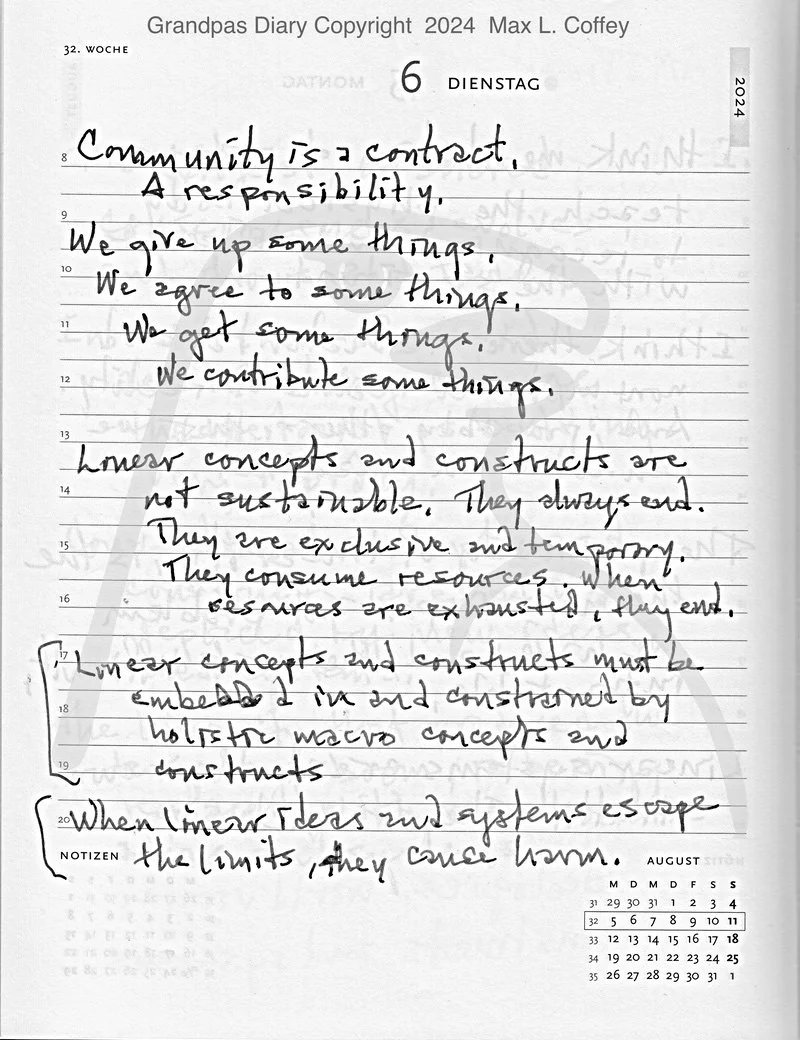 Grandpas Diary Copyright 2024 Max L. Coffey
32. WOCHE
6 DIENSTAG
2024
8 Community is a contract.
A responsibility.
9
We give up some things.
10 We agree to some things.
11 We get some things.
12 We contribute some things.
13
Linear concepts and constructs are
14 not sustainable. They always end.
15 They are exclusive and temporary.
They consume resources. When
16 resources are exhausted, they end.
17 Linear concepts and constructs must be
18 embedded in and constrained by
holistic macro concepts and
19 constructs
20 When linear ideas and systems escape
NOTIZEN the limits, they cause harm.
AUGUST
M D M D F S S
31 29 30 31 1 2 3 4
32 5 6 7 8 9 10 11
33 12 13 14 15 16 17 18
34 19 20 21 22 23 24 25
35 26 27 28 29 30 31 1